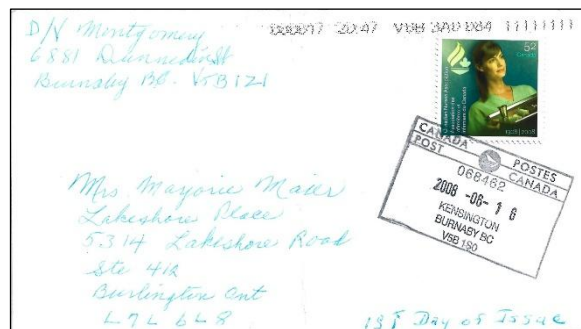 D/V Montgomery
6881 Dunnedin St
Burnaby BC. V5B 1Z1
000017 20:47 V0B 3A0 084 1111111
52
Canada
1908 | 2008
CANADA POSTES
POST CANADA
068462
2008 -06- 1 6
KENSINGTON
BURNABY BC
V5B 1S0
Mrs. Marjorie Maier
Lakeshore Place
5314 Lakeshore Road
Ste 412
Burlington Ont
L7L 6L8
1ST Day of Issue